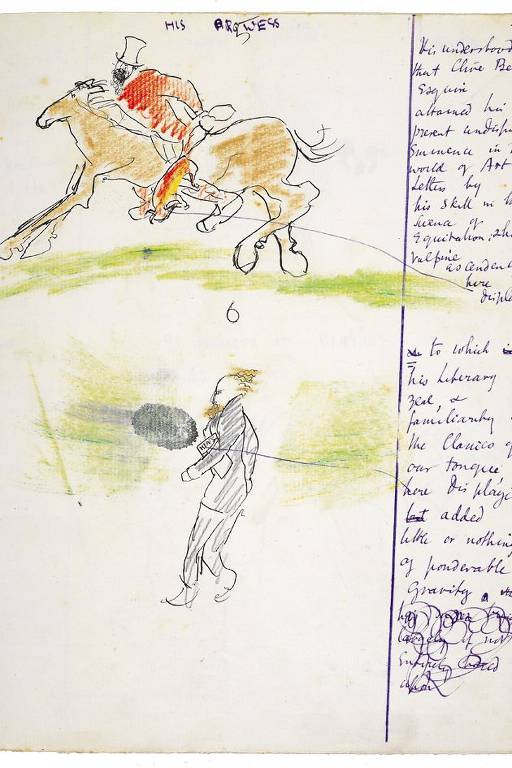 HIS
6
It is understood
that Clive Be
Esquire
attained his
present undisput
Eminence in
world of Art
Letters by
his skill in th
Science of
Equitation; sh
vulpine
ascendenc
here
displa
to which
his literary
zeal, &
familiarity
the Classics of
our tongue
here displaye
but added
little or nothing
of ponderable
gravity
largely if not
entirely